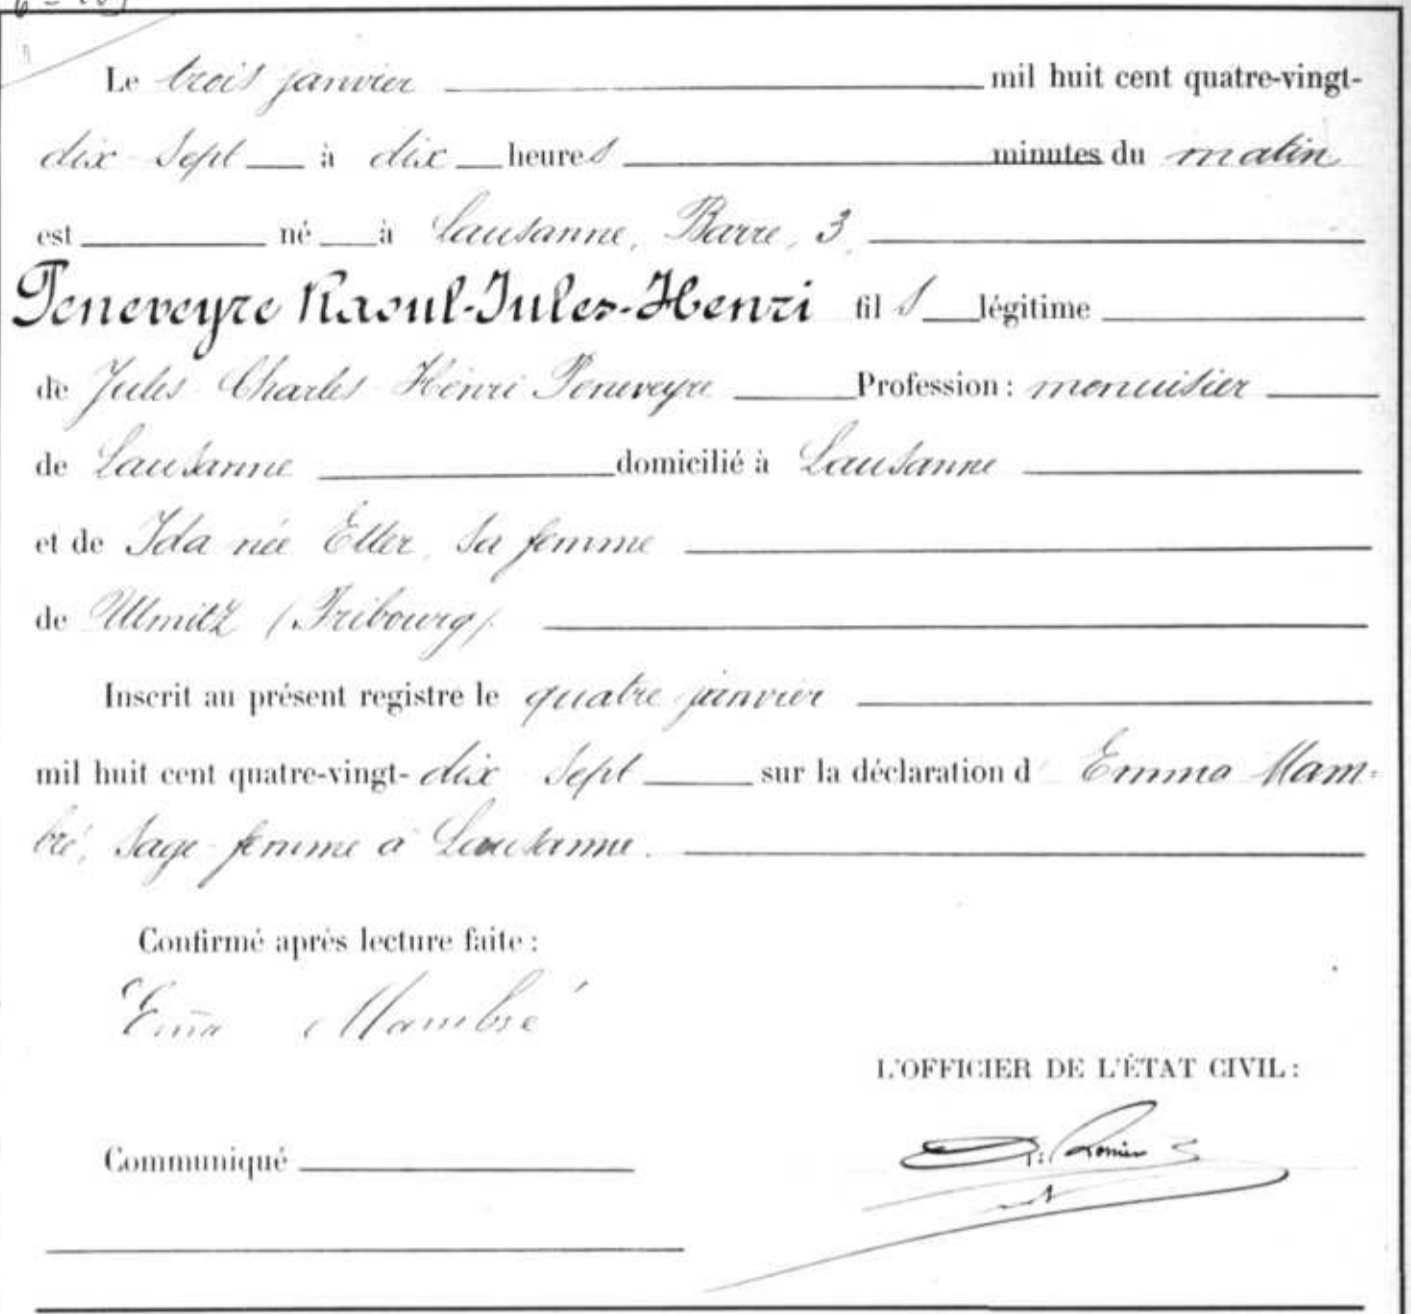 Le trois janvier mil huit cent quatre-vingt-
dix-sept à dix heures minutes du matin
est né à Lausanne, Barre, 3,
Peneveyre Raoul-Jules-Henri fils légitime
de Jules-Charles-Henri Peneveyre Profession: menuisier
de Lausanne domicilié à Lausanne
et de Ida née Etter, sa femme
de Ulmitz (Fribourg).
Inscrit au présent registre le quatre janvier
mil huit cent quatre-vingt-dix-sept sur la déclaration d' Emma Mam-
bré, sage-femme à Lausanne.
Confirmé après lecture faite:
Emma Mambré
L'OFFICIER DE L'ÉTAT CIVIL:
Communiqué